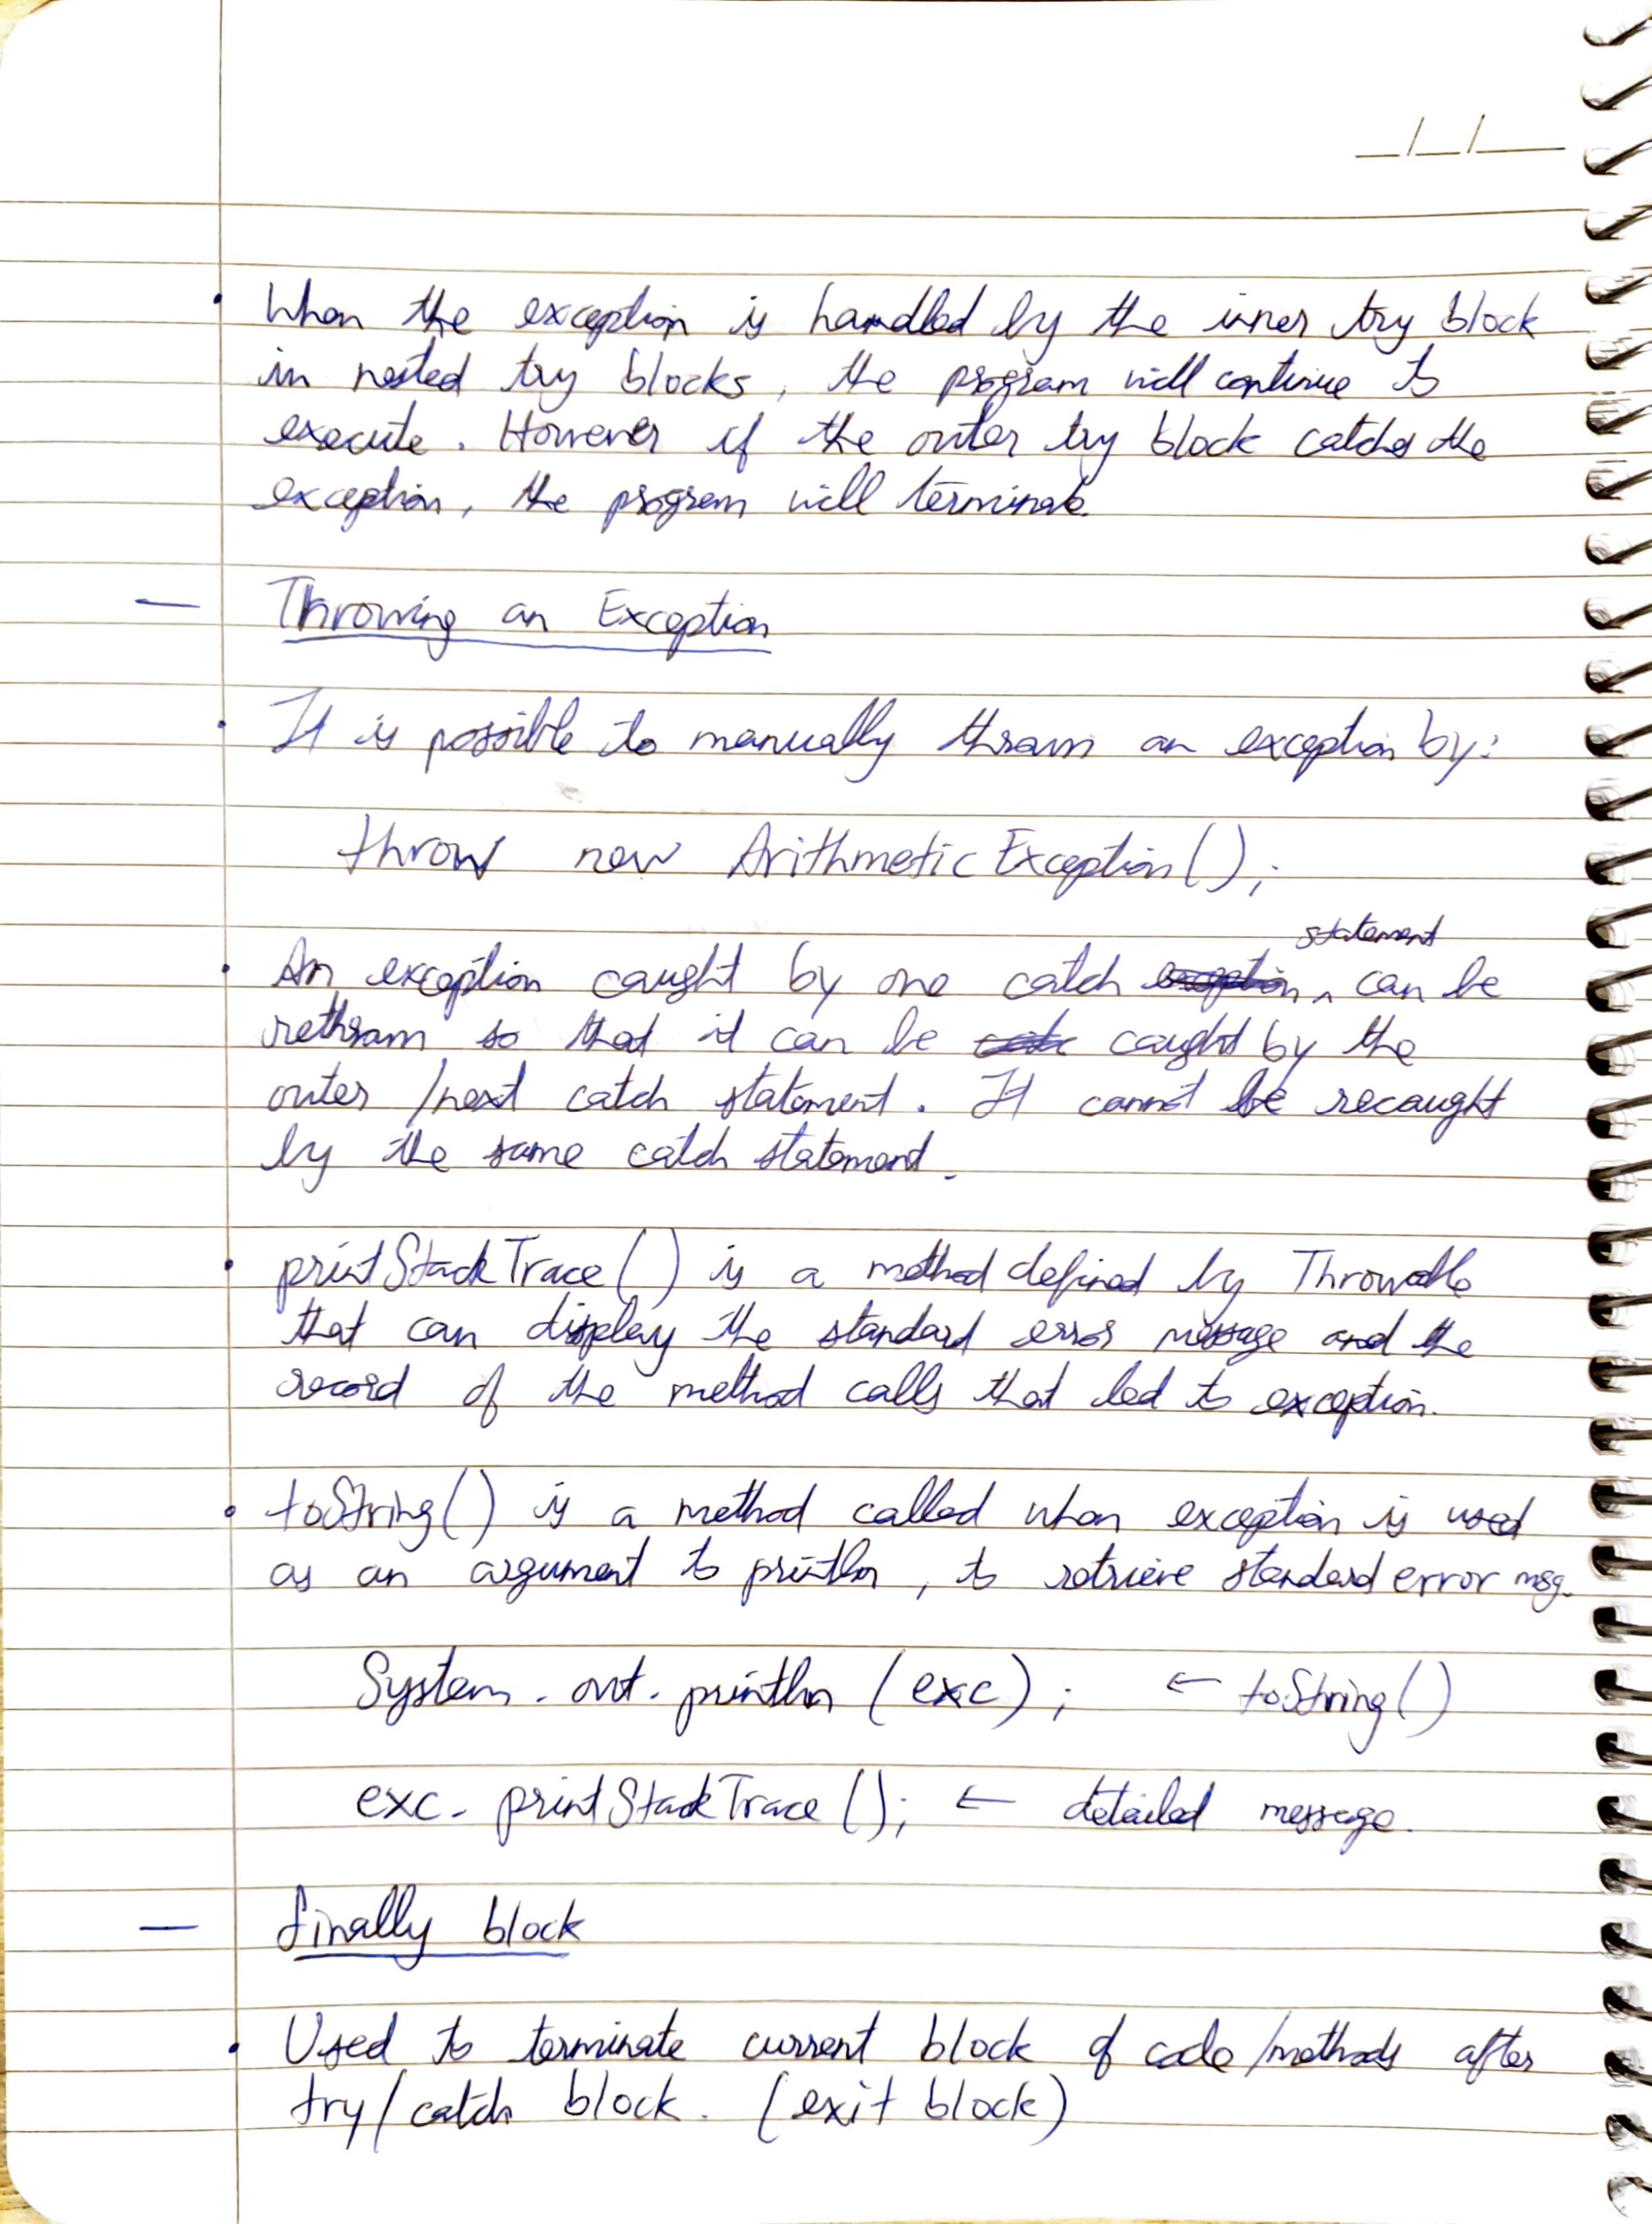 When the exception is handled by the inner try block
in nested try blocks, the program will continue to
execute. However if the outer try block catches the
exception, the program will terminate.
— Throwing an Exception
• It is possible to manually thrown an exception by:
throw new ArithmeticException();
statement
• An exception caught by one catch ^ can be
rethrown so that it can be caught by the
outer /next catch statement. It cannot be recaught
by the same catch statement.
• printStackTrace() is a method defined by Throwable
that can display the standard error message and the
record of the method calls that led to exception.
• toString() is a method called when exception is used
as an argument to println, to retrieve standard error msg.
System.out.println (exc); ← toString()
exc.printStackTrace(); ← detailed message.
— finally block
• Used to terminate current block of code/methods after
try/catch block. (exit block)